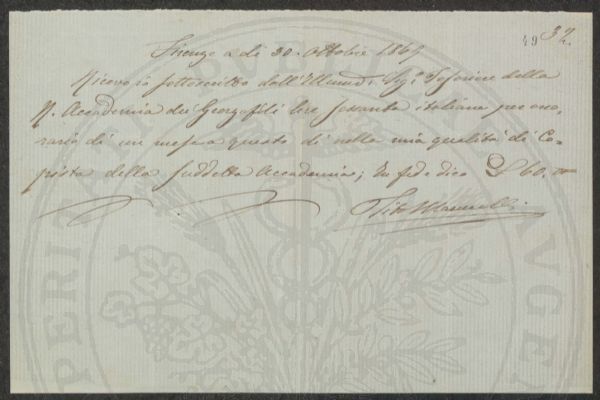 49 32.
Firenze a dì 30. Ottobre 186
Ricevo io sottoscritto dall'Illmo. Sig.e Tesoriere della
R. Accademia dei Georgofili lire sessanta italiane per ono-
rario di un mese a questo dì nella mia qualità di Co-
pista della suddetta Accademia; In fede dico £ 60. 00
Tito
PERI AVGE